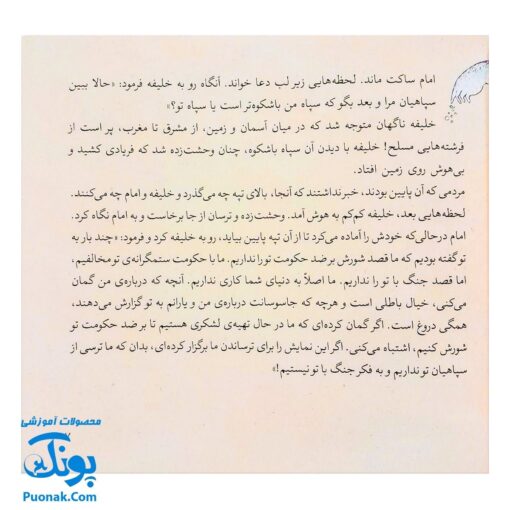 امام ساکت ماند. لحظه‌هایی زیر لب دعا خواند. آنگاه رو به خلیفه فرمود: «حالا ببین
سپاهیان مرا و بعد بگو که سپاه من باشکوه‌تر است یا سپاه تو؟»
خلیفه ناگهان متوجه شد که در میان آسمان و زمین، از مشرق تا مغرب، پر است از
فرشته‌هایی مسلح! خلیفه با دیدن آن سپاه باشکوه، چنان وحشت‌زده شد که فریادی کشید و
بی‌هوش روی زمین افتاد.
مردمی که آن پایین بودند، خبر نداشتند که آنجا، بالای تپه چه می‌گذرد و خلیفه و امام چه می‌کنند.
لحظه‌هایی بعد، خلیفه کم‌کم به هوش آمد. وحشت‌زده و ترسان از جا برخاست و به امام نگاه کرد.
امام درحالی‌که خودش را آماده می‌کرد تا از آن تپه پایین بیاید، رو به خلیفه کرد و فرمود: «چند بار به
تو گفته بودیم که ما قصد شورش بر ضد حکومت تو را نداریم. ما با حکومت ستمگرانه‌ی تو مخالفیم،
اما قصد جنگ با تو را نداریم. ما اصلاً به دنیای شما کاری نداریم. آنچه که درباره‌ی من گمان
می‌کنی، خیال باطلی است و هرچه که جاسوسانت درباره‌ی من و یارانم به تو گزارش می‌دهند،
همگی دروغ است. اگر گمان کرده‌ای که ما در حال تهیه‌ی لشکری هستیم تا بر ضد حکومت تو
شورش کنیم، اشتباه می‌کنی. اگر این نمایش را برای ترساندن ما برگزار کرده‌ای، بدان که ما ترسی از
سپاهیان تو نداریم و به فکر جنگ با تو نیستیم!»
محصولات آموزشی
پونک
Puonak.Com